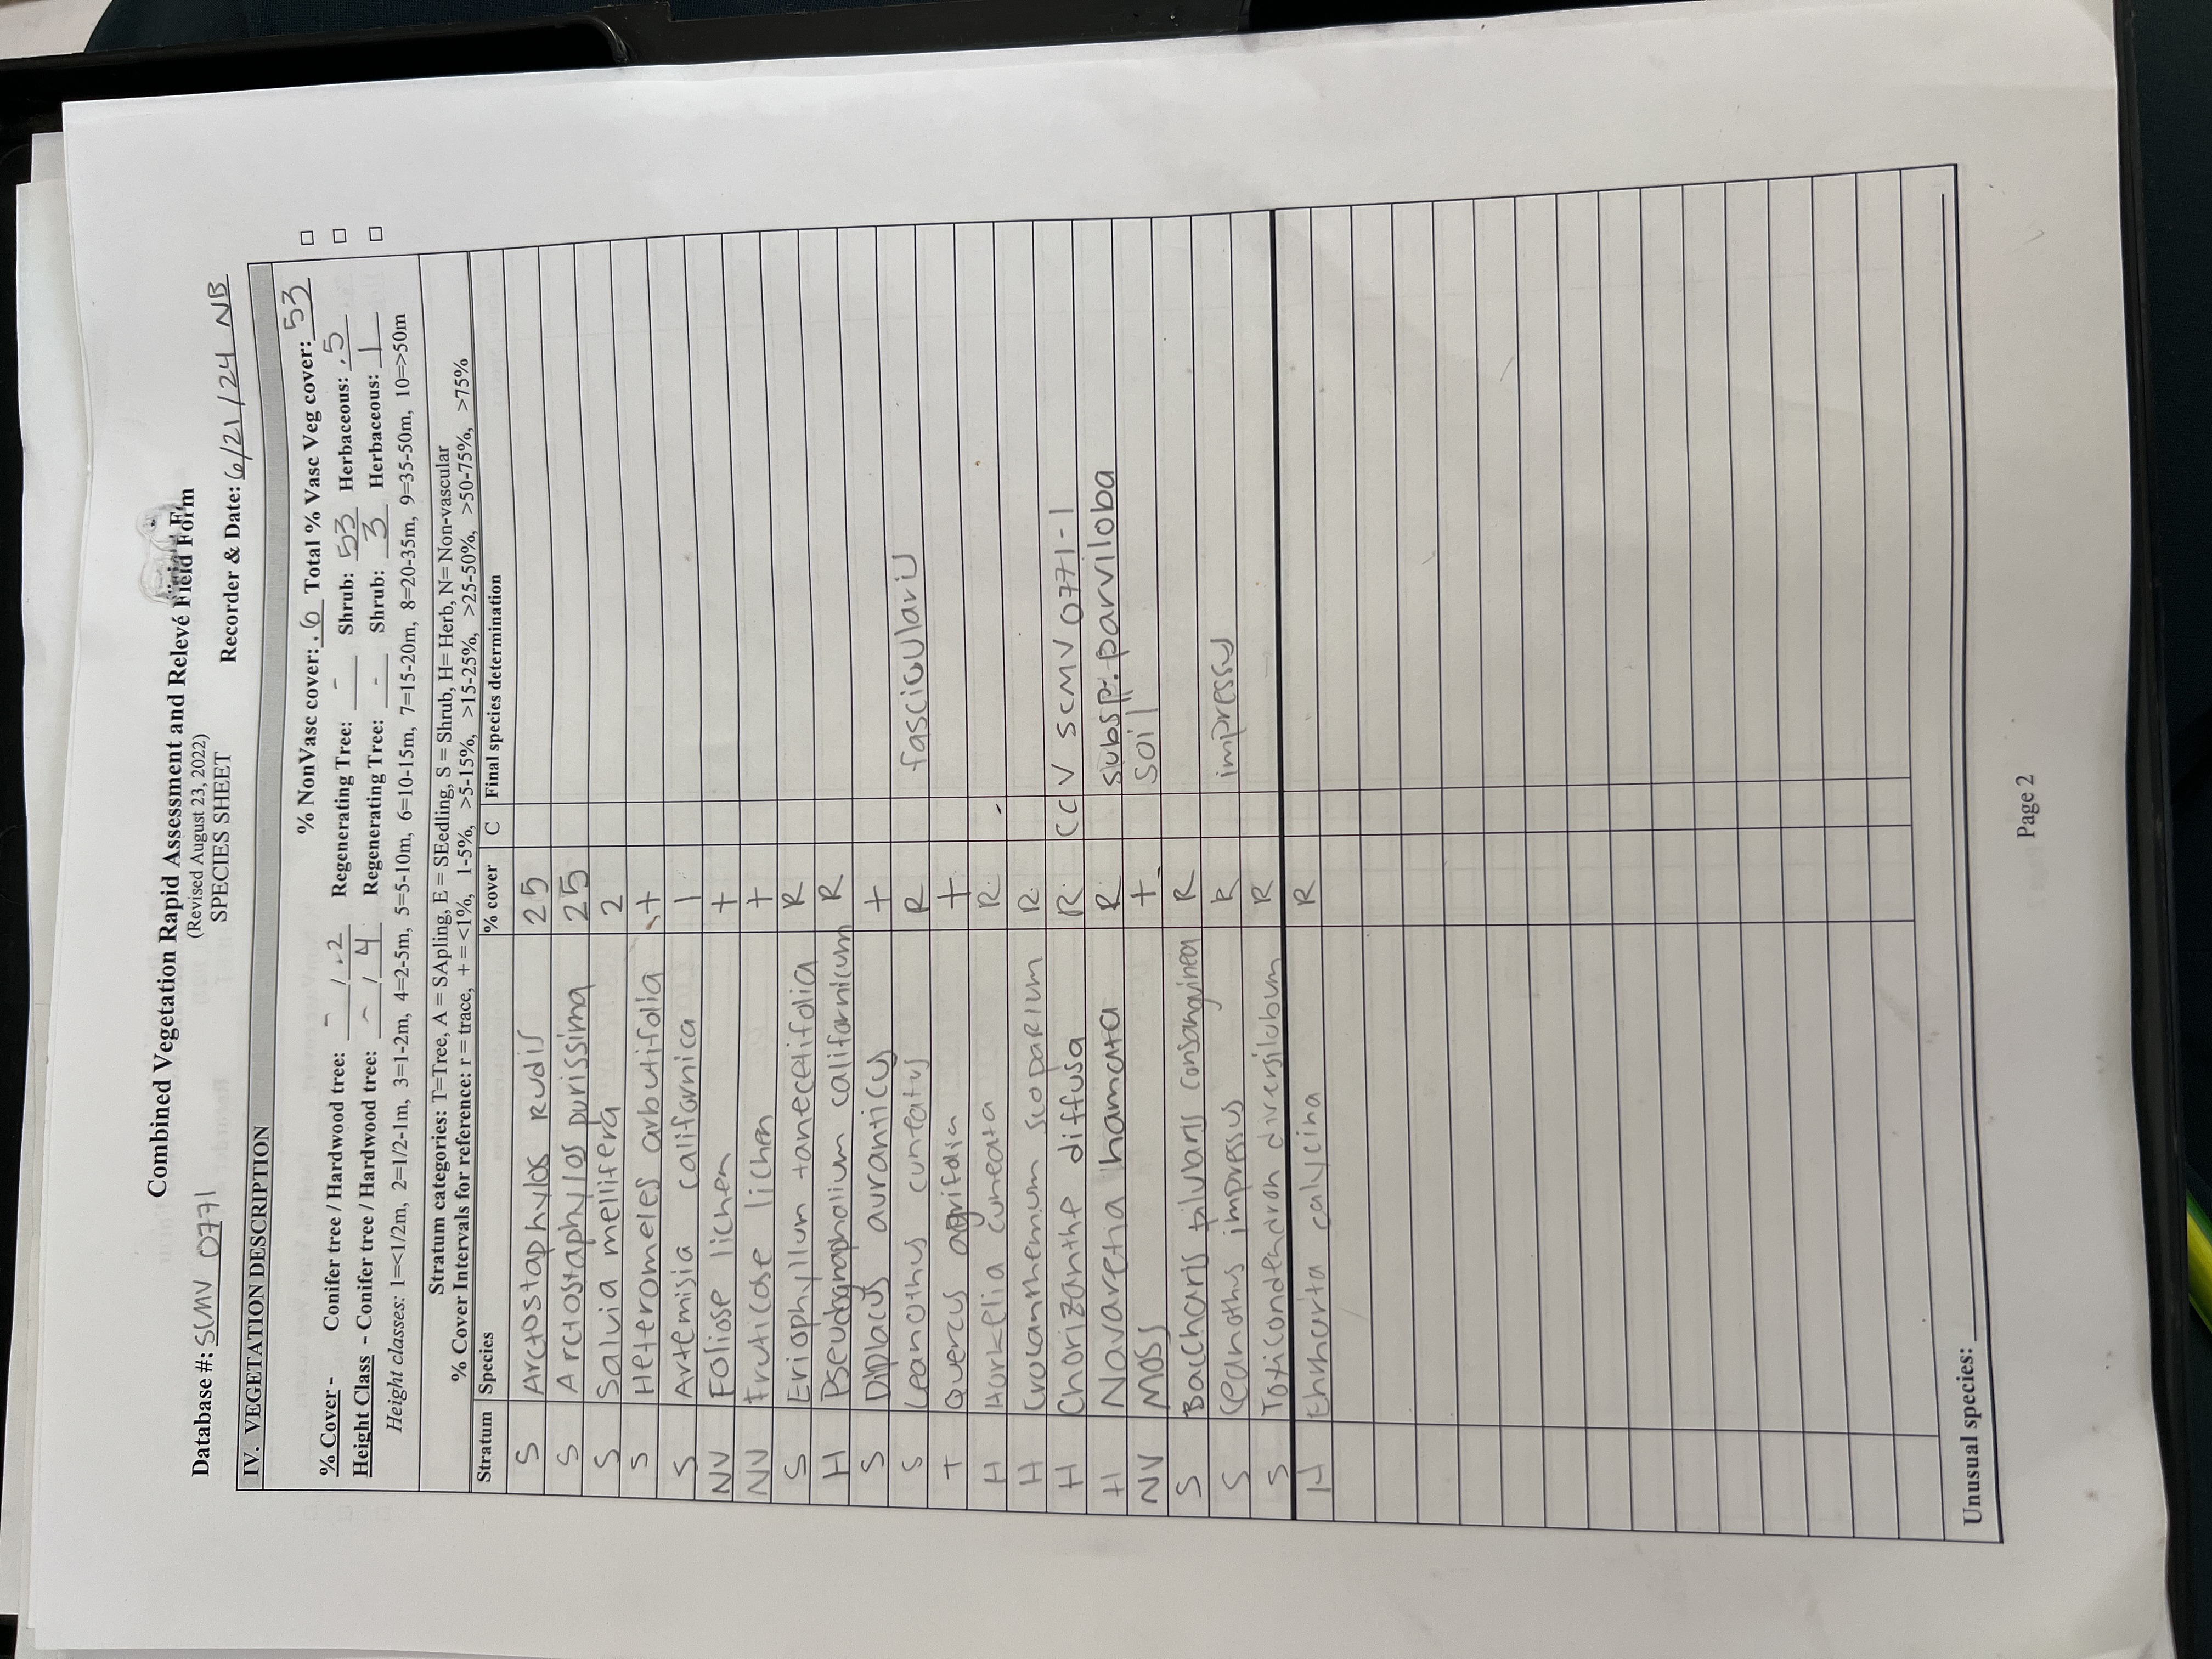 Combined Vegetation Rapid Assessment and Relevé Field Form
(Revised August 23, 2022)
SPECIES SHEET
Database #: SCMV 0771 Recorder & Date: 6/21/24 NB
IV. VEGETATION DESCRIPTION
% NonVasc cover: .6 Total % Vasc Veg cover: 53 □
% Cover - Conifer tree / Hardwood tree: - / .2 Regenerating Tree: - Shrub: 53 Herbaceous: .5 □
Height Class - Conifer tree / Hardwood tree: - / 4 Regenerating Tree: - Shrub: 3 Herbaceous: 1 □
Height classes: 1=<1/2m, 2=1/2-1m, 3=1-2m, 4=2-5m, 5=5-10m, 6=10-15m, 7=15-20m, 8=20-35m, 9=35-50m, 10=>50m
Stratum categories: T=Tree, A = SApling, E = SEedling, S = Shrub, H= Herb, N= Non-vascular
% Cover Intervals for reference: r = trace, + = <1%, 1-5%, >5-15%, >15-25%, >25-50%, >50-75%, >75%
Stratum Species % cover C Final species determination
S Arctostaphylos rudis 25
S Arctostaphylos purissima 25
S Salvia mellifera 2
S Heteromeles arbutifolia +
S Artemisia californica 1
NV Foliose lichen +
NV Fruticose lichen +
S Eriophyllum tanecetifolia R
H Pseudognaphalium californicum R
S Diplacus auranticus +
S Ceanothus cuneatus R fascicularis
T Quercus agrifolia +
H Horkelia cuneata R
H Crocanthemum scoparium R
H Chorizanthe diffusa R CCV SCMV0771-1
H Navaretia hamata R subsp. parviloba
NV Moss + soil
S Baccharis pilularis consanguinea R
S Ceanothus impressus R impressus
S Toxicondendron diversilobum R
H Ehrharta calycina R
Unusual species:
Page 2